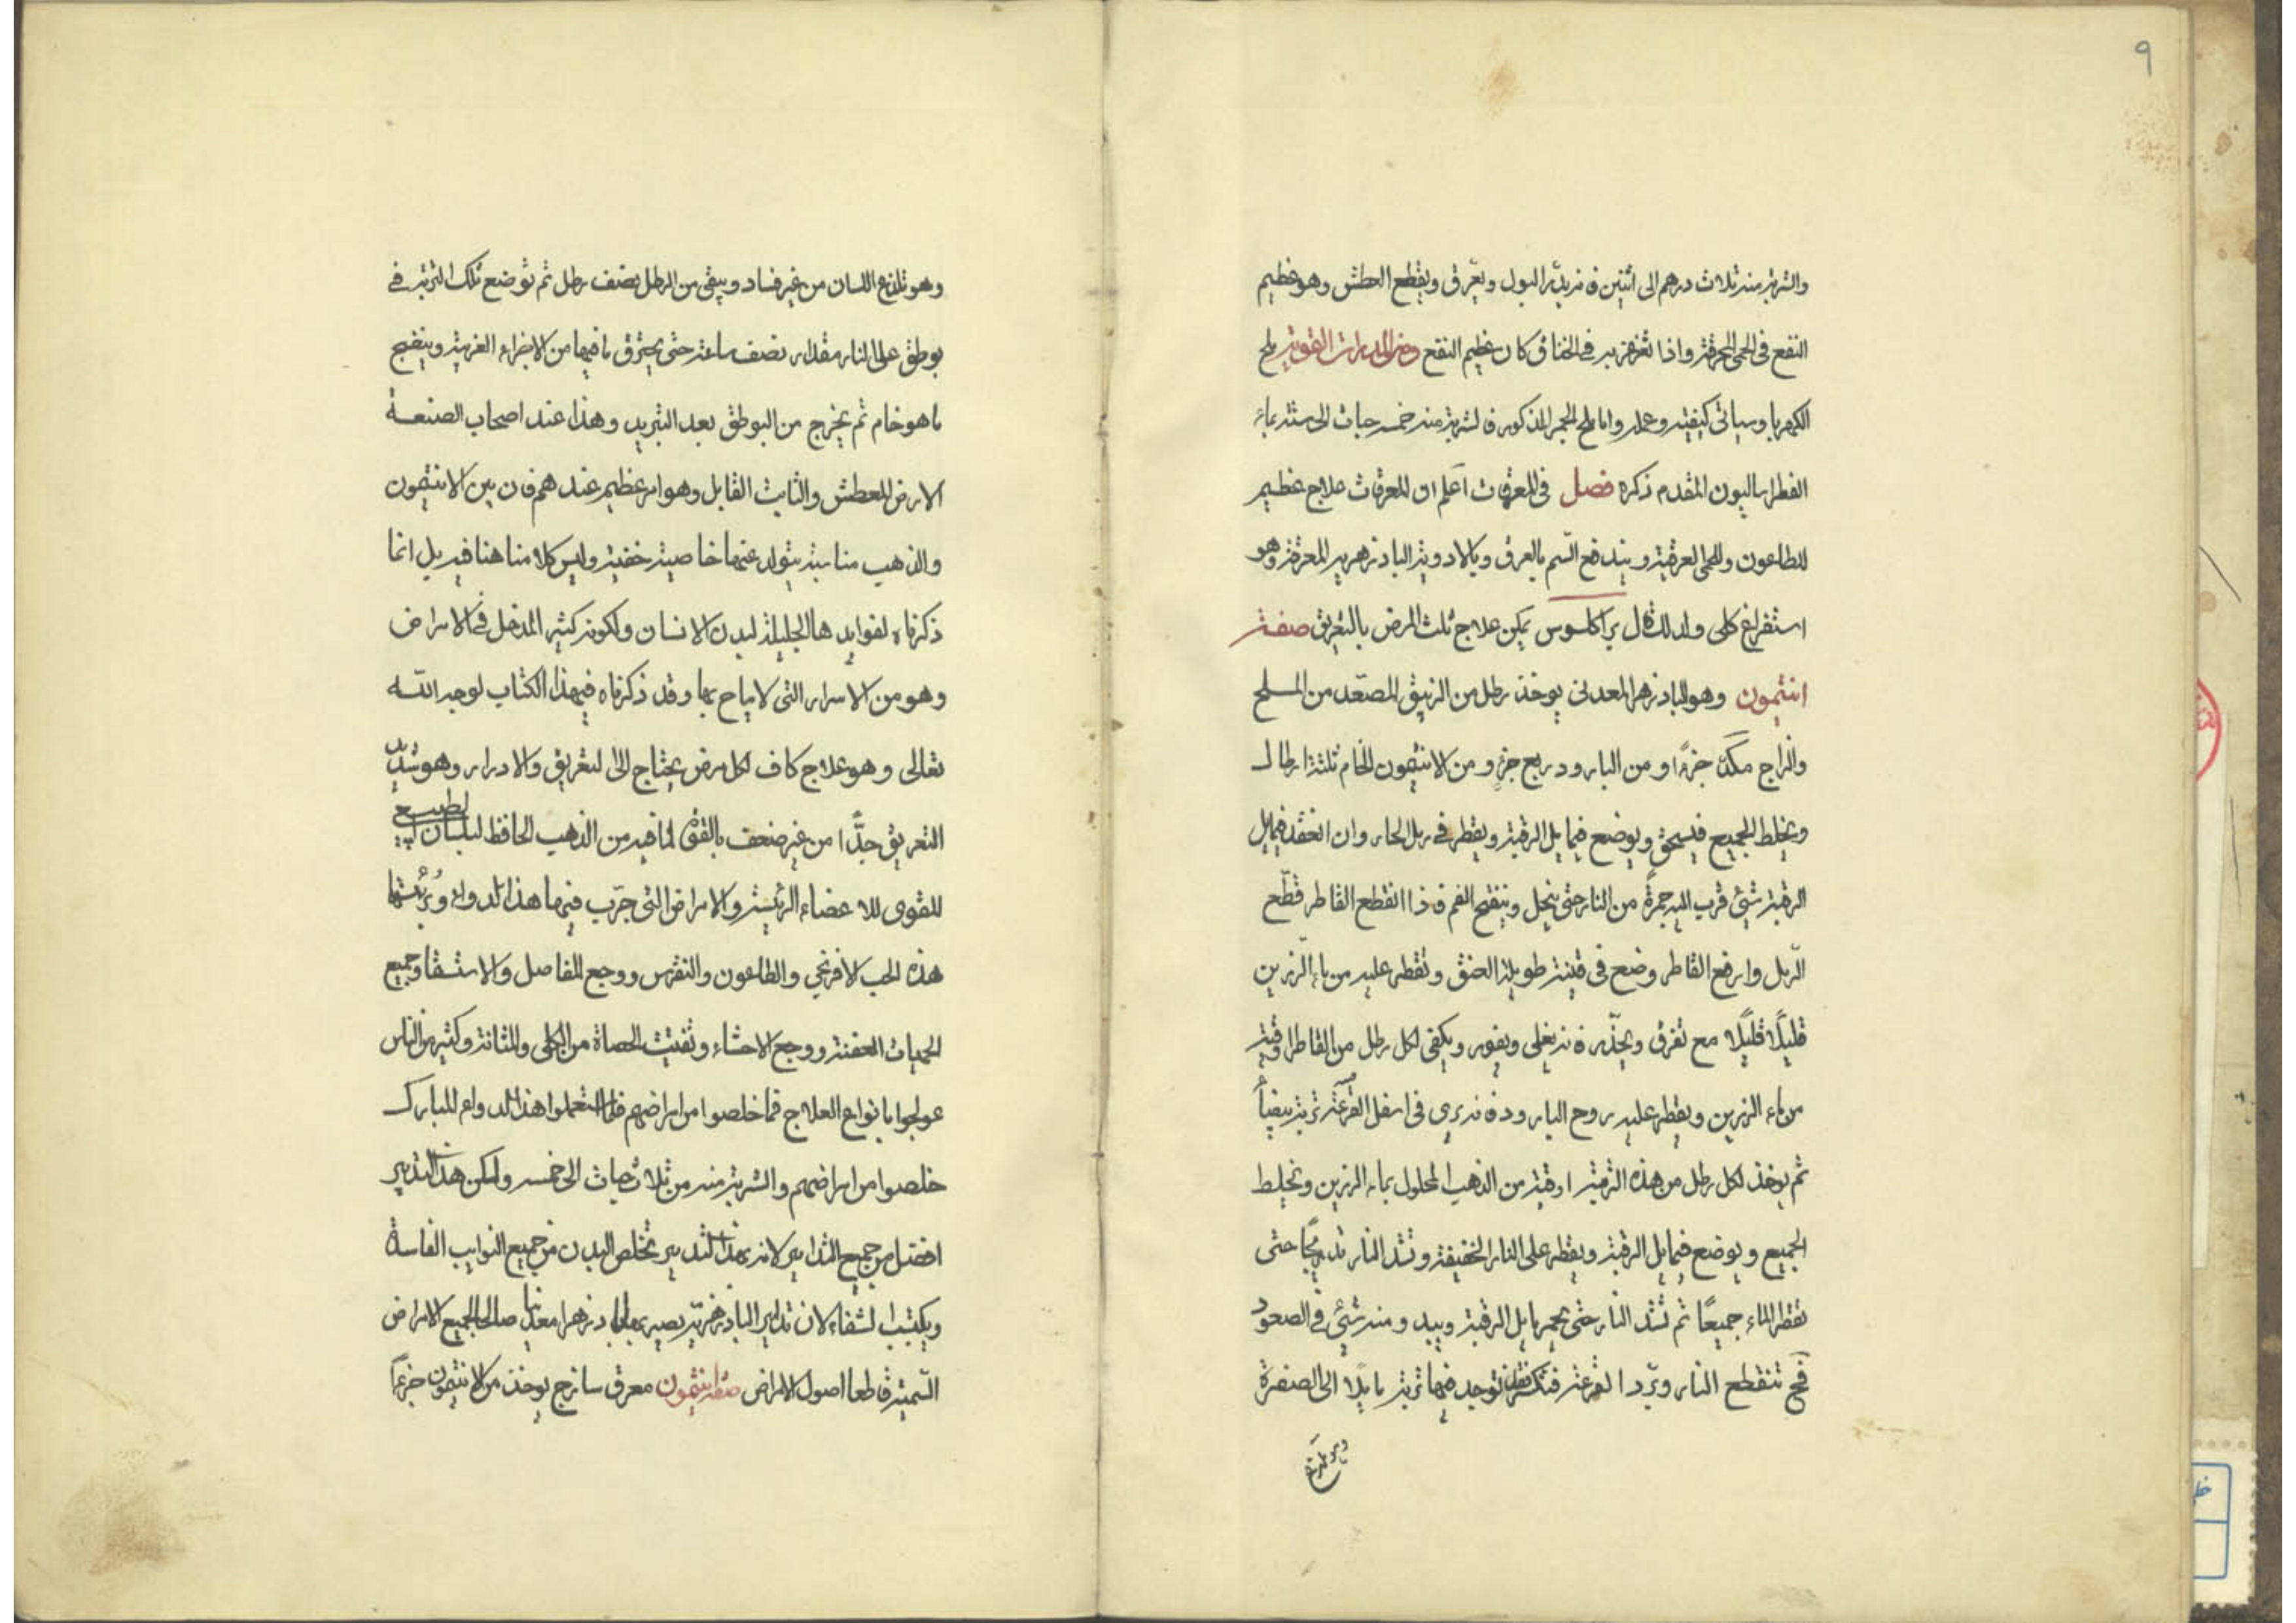 ٩
والشربة منه ثلاث درهم الى اثنين فانه يدر البول ويعرق ويقطع العطش وهو عظيم
النفع فى الحمى المحرقة واذا تغرغر به فى الخناق كان عظيم النفع ومن المدرات القوية ملح
الكهربا وسياتى كيفيته وعمله واما ملح الحجر المذكور فالشربة منه خمس حبات الى ستة بماء
الفطراساليون المقدم ذكره فصل فى المعرقات اعلم ان المعرقات علاج عظيم
للطاعون وللحمى العرقية ويندفع السم بالعرق وبالادوية البادزهرية المعرقة وهو
استفراغ كلى ولذلك قال براكلسوس يمكن علاج ثلث المرض بالتعريق صفة
انتيمون وهو البادزهر المعدنى يوخذ رطل من الزيبق المصعد من الملح
والزاج مكد جزءًا ومن البارود ربع جزء ومن الانتيمون الخام ثلثة ارطال
ويخلط الجميع فيسحق ويوضع فى مايل الرقبة ويقطر فى رمل الحار وان انعقد فى مايل
الرقبة شئ قرب اليه جمرةً من النار حتى ينحل وينفتح الفم فاذا انقطع القاطر قطّع
الرمل وارفع القاطر وضع فى قنينة طويلة العنق وتقطر عليه من ماء الرزين
قليلًا قليلًا مع تفرق وبحذر فانه يغلى ويفور ويكفى لكل رطل من القاطر اوقية
من ماء الرزين ويقطر عليه روح البارود فانه يرى فى اسفل القرعة تربة بيضاً
ثم يوخذ لكل رطل من هذه التربة اوقية من الذهب المحلول بماء الرزين ويخلط
الجميع ويوضع فى مايل الرقبة ويقطر على النار الخفيفة وتشد النار تدريجًا حتى
تقطر الماء جميعًا ثم تشد النار حتى يحمر مايل الرقبة ويبد ومنه شئ فى الصعود
فح تنقطع النار ويبرد القرعة فتكسر توجد فيها تربة مايلا الى الصفرة
وهو تلذع اللسان من غير فساد ويبقى من الرطل نصف رطل ثم توضع تلك التربة فى
بوطق على النار مقدار نصف ساعة حتى يحترق ما فيها من الاجزاء الغريبة وينضج
ما هو خام ثم يخرج من البوطق بعد التبريد وهذا عند اصحاب الصنعة
الارض المعطش والثابت القابل وهو امر عظيم عندهم فان بين الانتيمون
والذهب مناسبة يتولد عنهما خاصية خفية وليس كلامنا هنا فيه بل انما
ذكرناه لفوايدها الجليلة لبدن الانسان ولكونه كثير المدخل فى الامراض
وهو من الاسرار التى لا يباح بها وقد ذكرناه فى هذا الكتاب لوجه الله
تعالى وهو علاج كاف لكل مرض يحتاج الى التعريق والادرار وهو شديد
التعريق جدًّا من غير ضعف بالقوى لما فيه من الذهب الحافظ للبلسان الطبيح
المقوى للاعضاء الرئيسة والامراض التى جرّب فيها هذا الدواء وبرئتها
هذه الحب الافرنجى والطاعون والنقرس ووجع المفاصل والاستسقا وجميع
الحميات العفنة ووجع الاحشاء وتفتيت الحصاة من الكلى والمثانة وكثير من الناس
عولجوا بانواع العلاج فما خلصوا من امراضهم فلما استعملوا هذا الدواء المبارك
خلصوا من امراضهم والشربة منه من ثلاث حبات الى خمسه ولكن هذا التدبير
افضل من جميع التدابير لانه بهذا التدبير يخلص البدن من جميع النوايب الفاسدة
ويكتسب الشفاء لان تدابير البادزهرية يصير بها بادزهرا معدنيا صالحا لجميع الامراض
السمية قاطعا اصول الامراض صفة انتيمون معرق سازج يوخذ من الانتيمون جزءًا